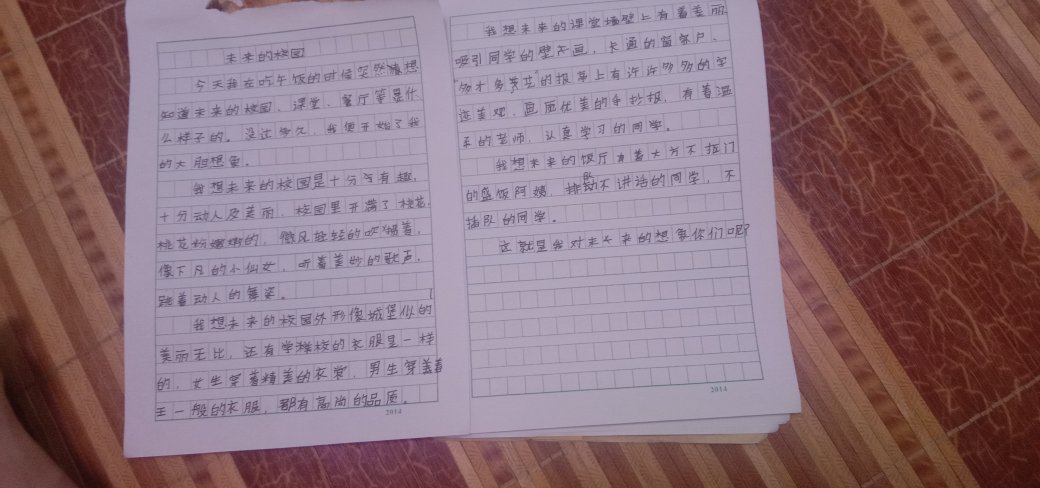 未来的校园
今天我在吃午饭的时候突然想
知道未来的校园、课堂、餐厅等是什
么样子的。没过多久,我便开始了我
的大胆想象。
我想未来的校园是十分有趣,
十分动人及美丽,校园里开满了桃花,
桃花粉嫩嫩的,微风轻轻的吹着,
像下凡的小仙女,听着美妙的歌声,
跳着动人的舞姿。
我想未来的校园外形像城堡似的
美丽无比,还有学校的衣服是一样
的,女生穿着精美的衣裳,男生穿着
王一般的衣服,都有高尚的品质。
2014
我想未来的课堂墙壁上有着美丽
吸引同学的壁画,卡通的窗户、
"多才多艺"的报革上有许许多多的字
迹美观,画质优美的手抄报,有着温
柔的老师,认真学习的同学。
我想未来的饭厅有着大方不抠门
的盛饭阿姨,排队不讲话的同学,不
插队的同学。
这就是我对未来的想象你们呢?
2014